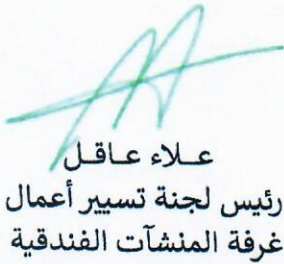 عـلاء عـاقـل
رئيس لجنة تسيير أعمال
غرفة المنشآت الفندقية